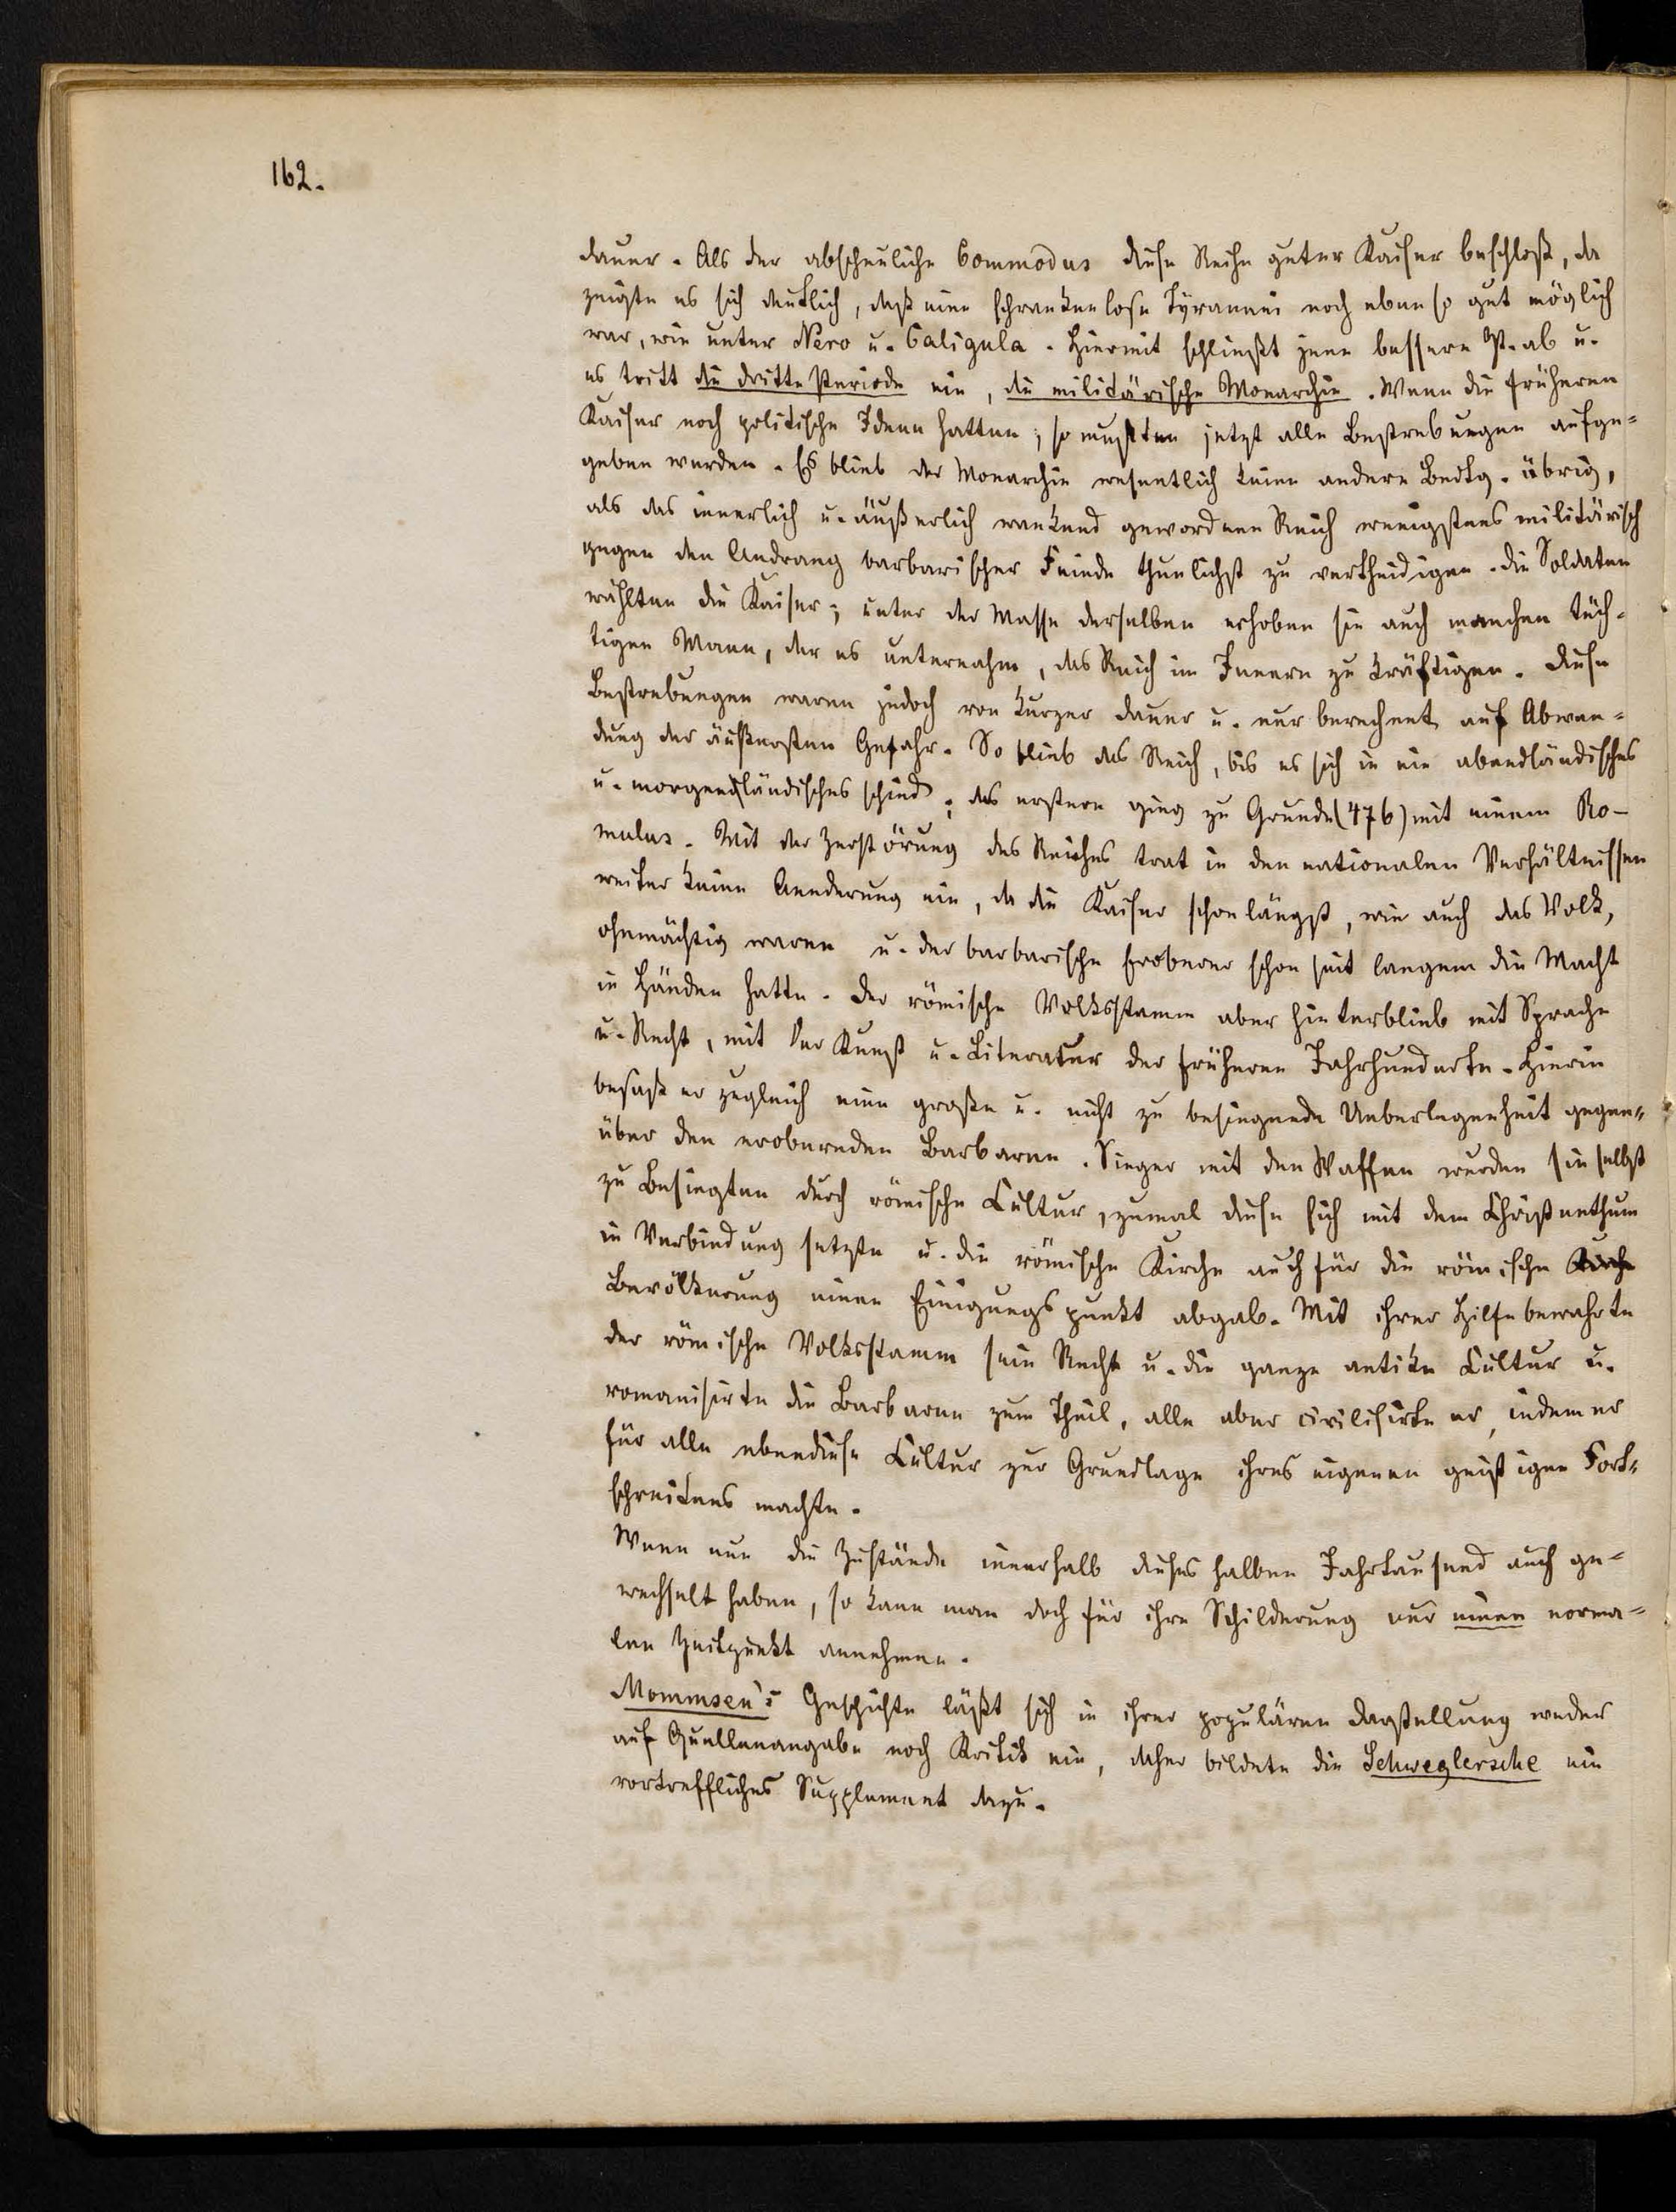 162.
dauer. Als der abscheuliche Commodus diese Reihe guter Kaiser beschloß, da
zeigte es sich deutlich, daß eine schrankenlose Tyrannei noch ebenso gut möglich
war, wie unter Nero u. Caligula. Hiermit schließt jene bessere P. ab u.
es tritt die dritte Periode ein, die militärische Monarchie. Wenn die früheren
Kaiser noch politische Ideen hatten, so mußten jetzt alle Bestrebungen aufge=
geben werden. Es blieb der Monarchie wesentlich keine andere Bedtg. übrig,
als das innerlich u. äußerlich wankend gewordene Reich wenigstens militärisch
gegen den Andrang barbarischer Feinde thunlichst zu vertheidigen. Die Soldaten
wählten die Kaiser; unter der Masse derselben erhoben sie auch manchen tüch=
tigen Mann, der es unternahm, das Reich im Innern zu kräftigen. Diese
Bestrebungen waren jedoch von kurzer Dauer u. nur berechnet auf Abwen=
dung der äußersten Gefahr. So blieb das Reich, bis es sich in ein abendländisches
u. morgenländisches schied; das erstere ging zu Grunde (476) mit einem Ro-
mulus. Mit der Zerstörung des Reiches trat in den nationalen Verhältnissen
weiter keine Aenderung ein, da die Kaiser schon längst, wie auch das Volk,
ohnmächtig waren u. der barbarische Eroberer schon seit langem die Macht
in Händen hatte. Der römische Volksstamm aber hinterblieb mit Sprache
u. Recht, mit der Kunst u. Literatur der früheren Jahrhunderte. Hierin
besaß er zugleich eine große u. nicht zu besiegende Ueberlegenheit gegen=
über den erobernden Barbaren. Sieger mit den Waffen wurden sie selbst
zu Besiegten durch römische Cultur, zumal diese sich mit dem Christenthum
in Verbindung setzte u. die römische Kirche auch für die römische Kirche
Bevölkerung einen Einigungspunkt abgab. Mit ihrer Hilfe bewahrte
der römische Volksstamm sein Recht u. die ganze antike Cultur u.
romanisirte die Barbaren zum Theil, alle aber civilisirte er, indem er
für alle ebendiese Cultur zur Grundlage ihres eigenen geistigen Fort=
schreitens machte.
Wenn nun die Zustände innerhalb dieses halben Jahrtausend auch ge=
wechselt haben, so kann man doch für ihre Schilderung nur einen norma=
len Zeitpunkt annehmen.
Mommsen's Geschichte läßt sich in ihrer populären Darstellung weder
auf Quellenangabe noch Kritik ein, daher bildete die Schweglersche ein
vortreffliches Supplement dazu.